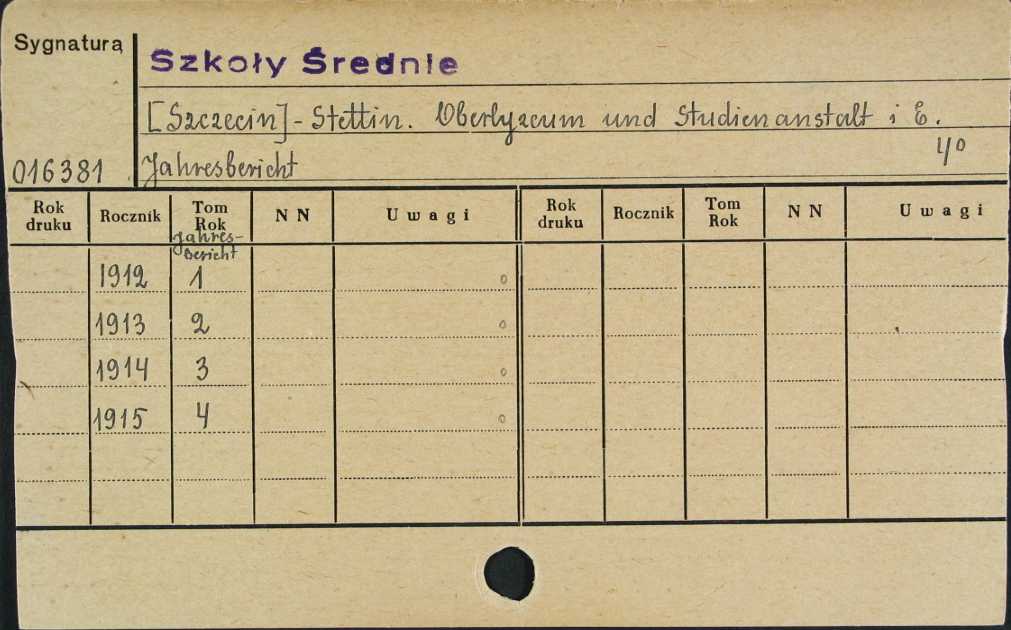 Sygnatura
Szkoły Średnie
[Szczecin] - Stettin. Oberlyzeum und Studienanstalt i E.
4º
016381 Jahresbericht
Rok druku Rocznik Tom Rok N N Uwagi Rok druku Rocznik Tom Rok N N Uwagi
Jahres-
bericht
1912 1 o
1913 2 o
1914 3 o
1915 4 o